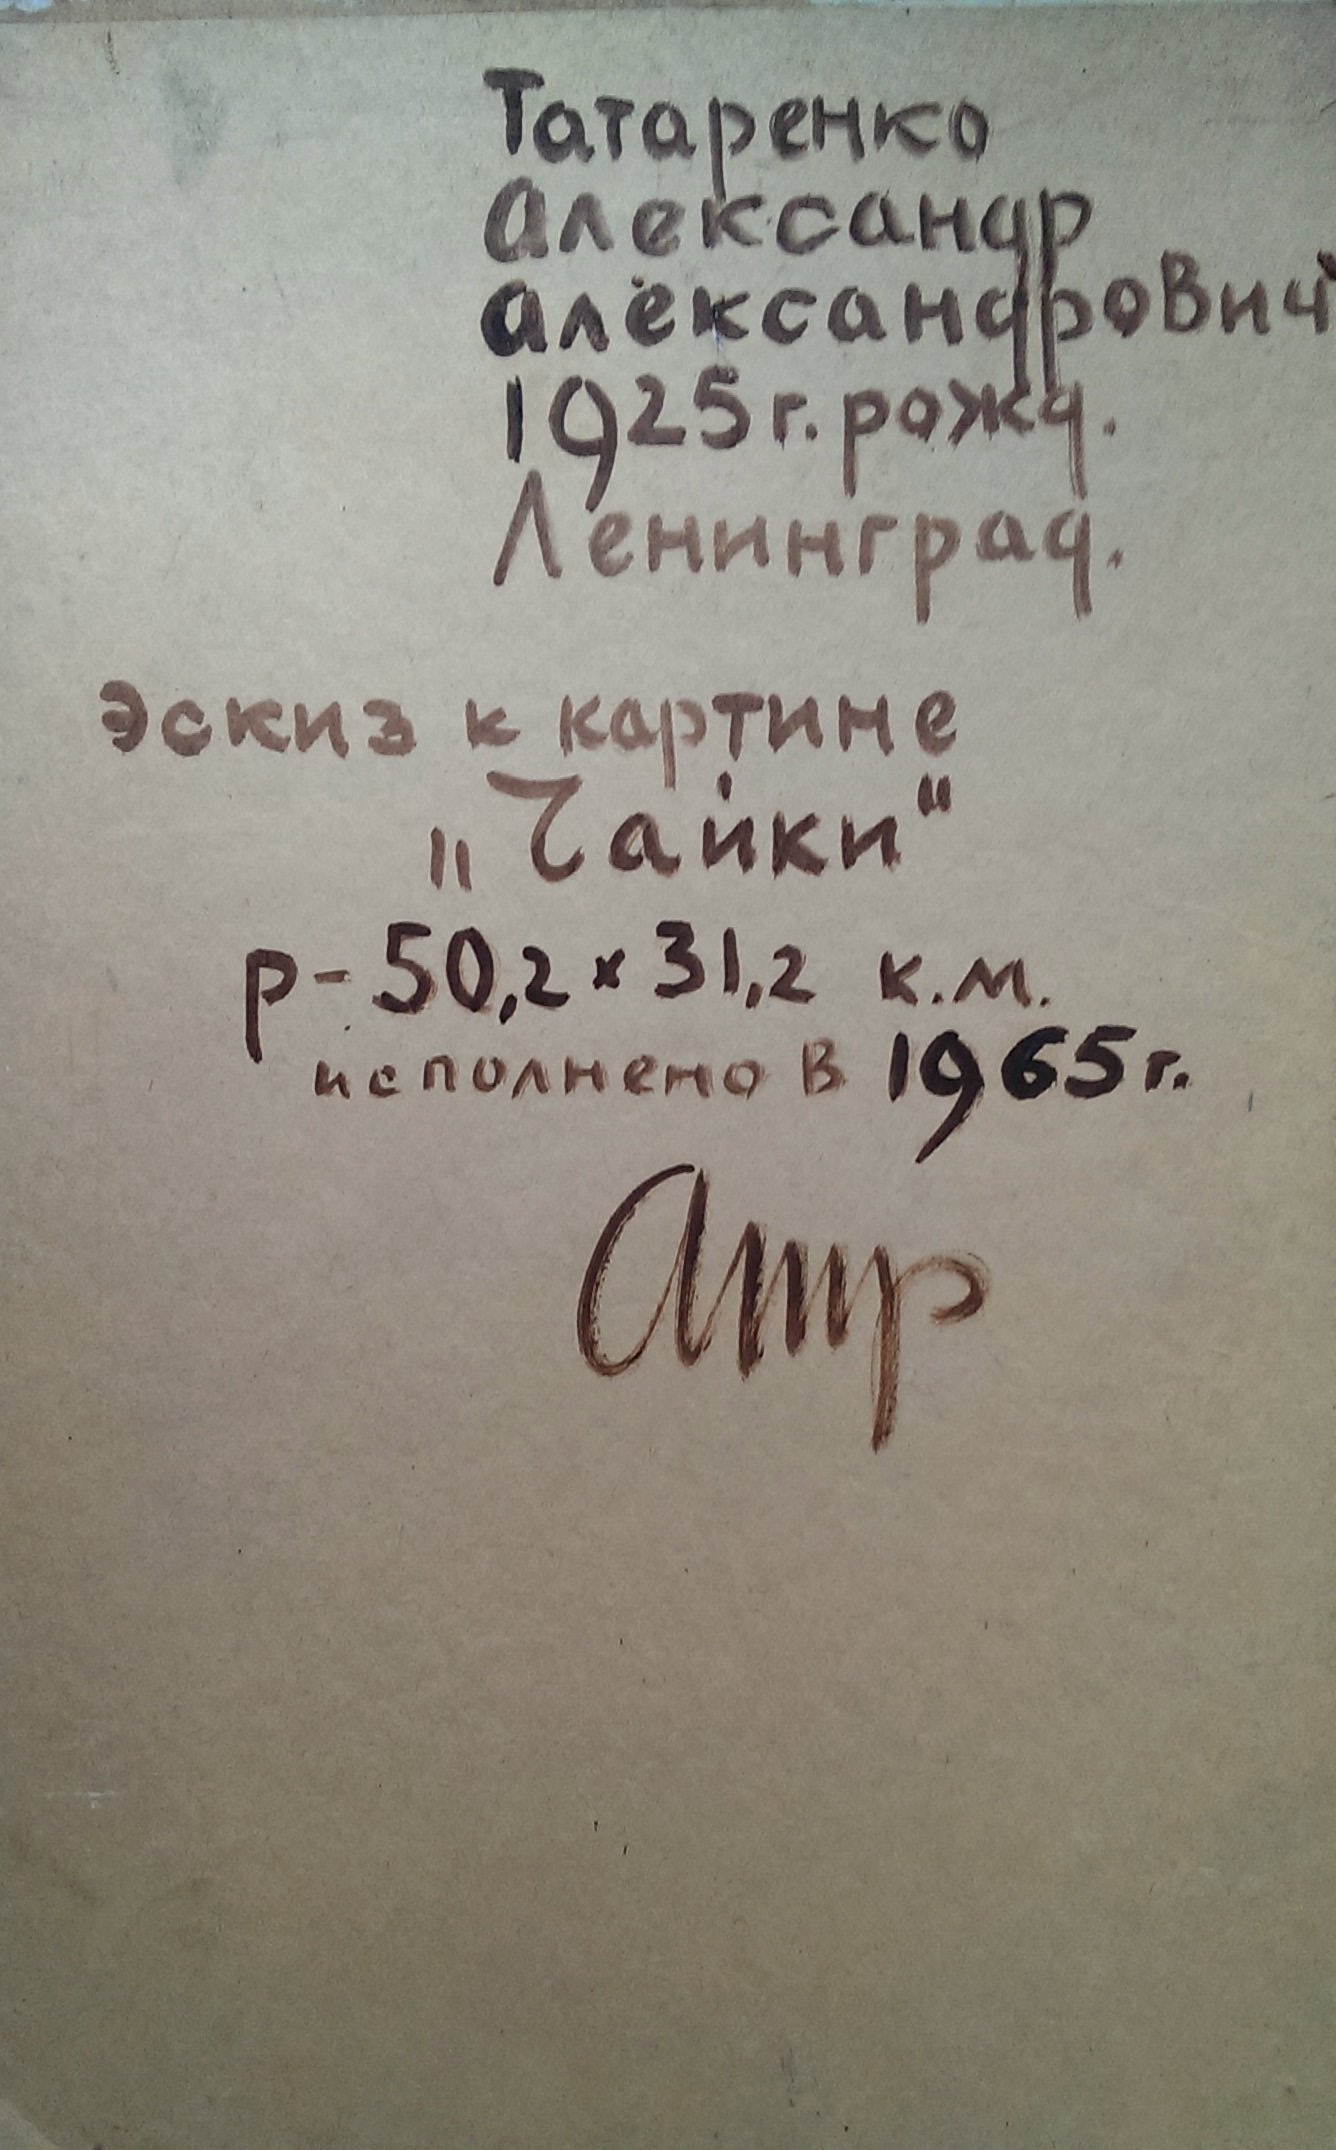 Татаренко
Александр
Александрович
1925 г. рожд.
Ленинград.
Эскиз к картине
„Чайки"
р-50,2 x 31,2 к.м.
исполнено в 1965 г.
Атр